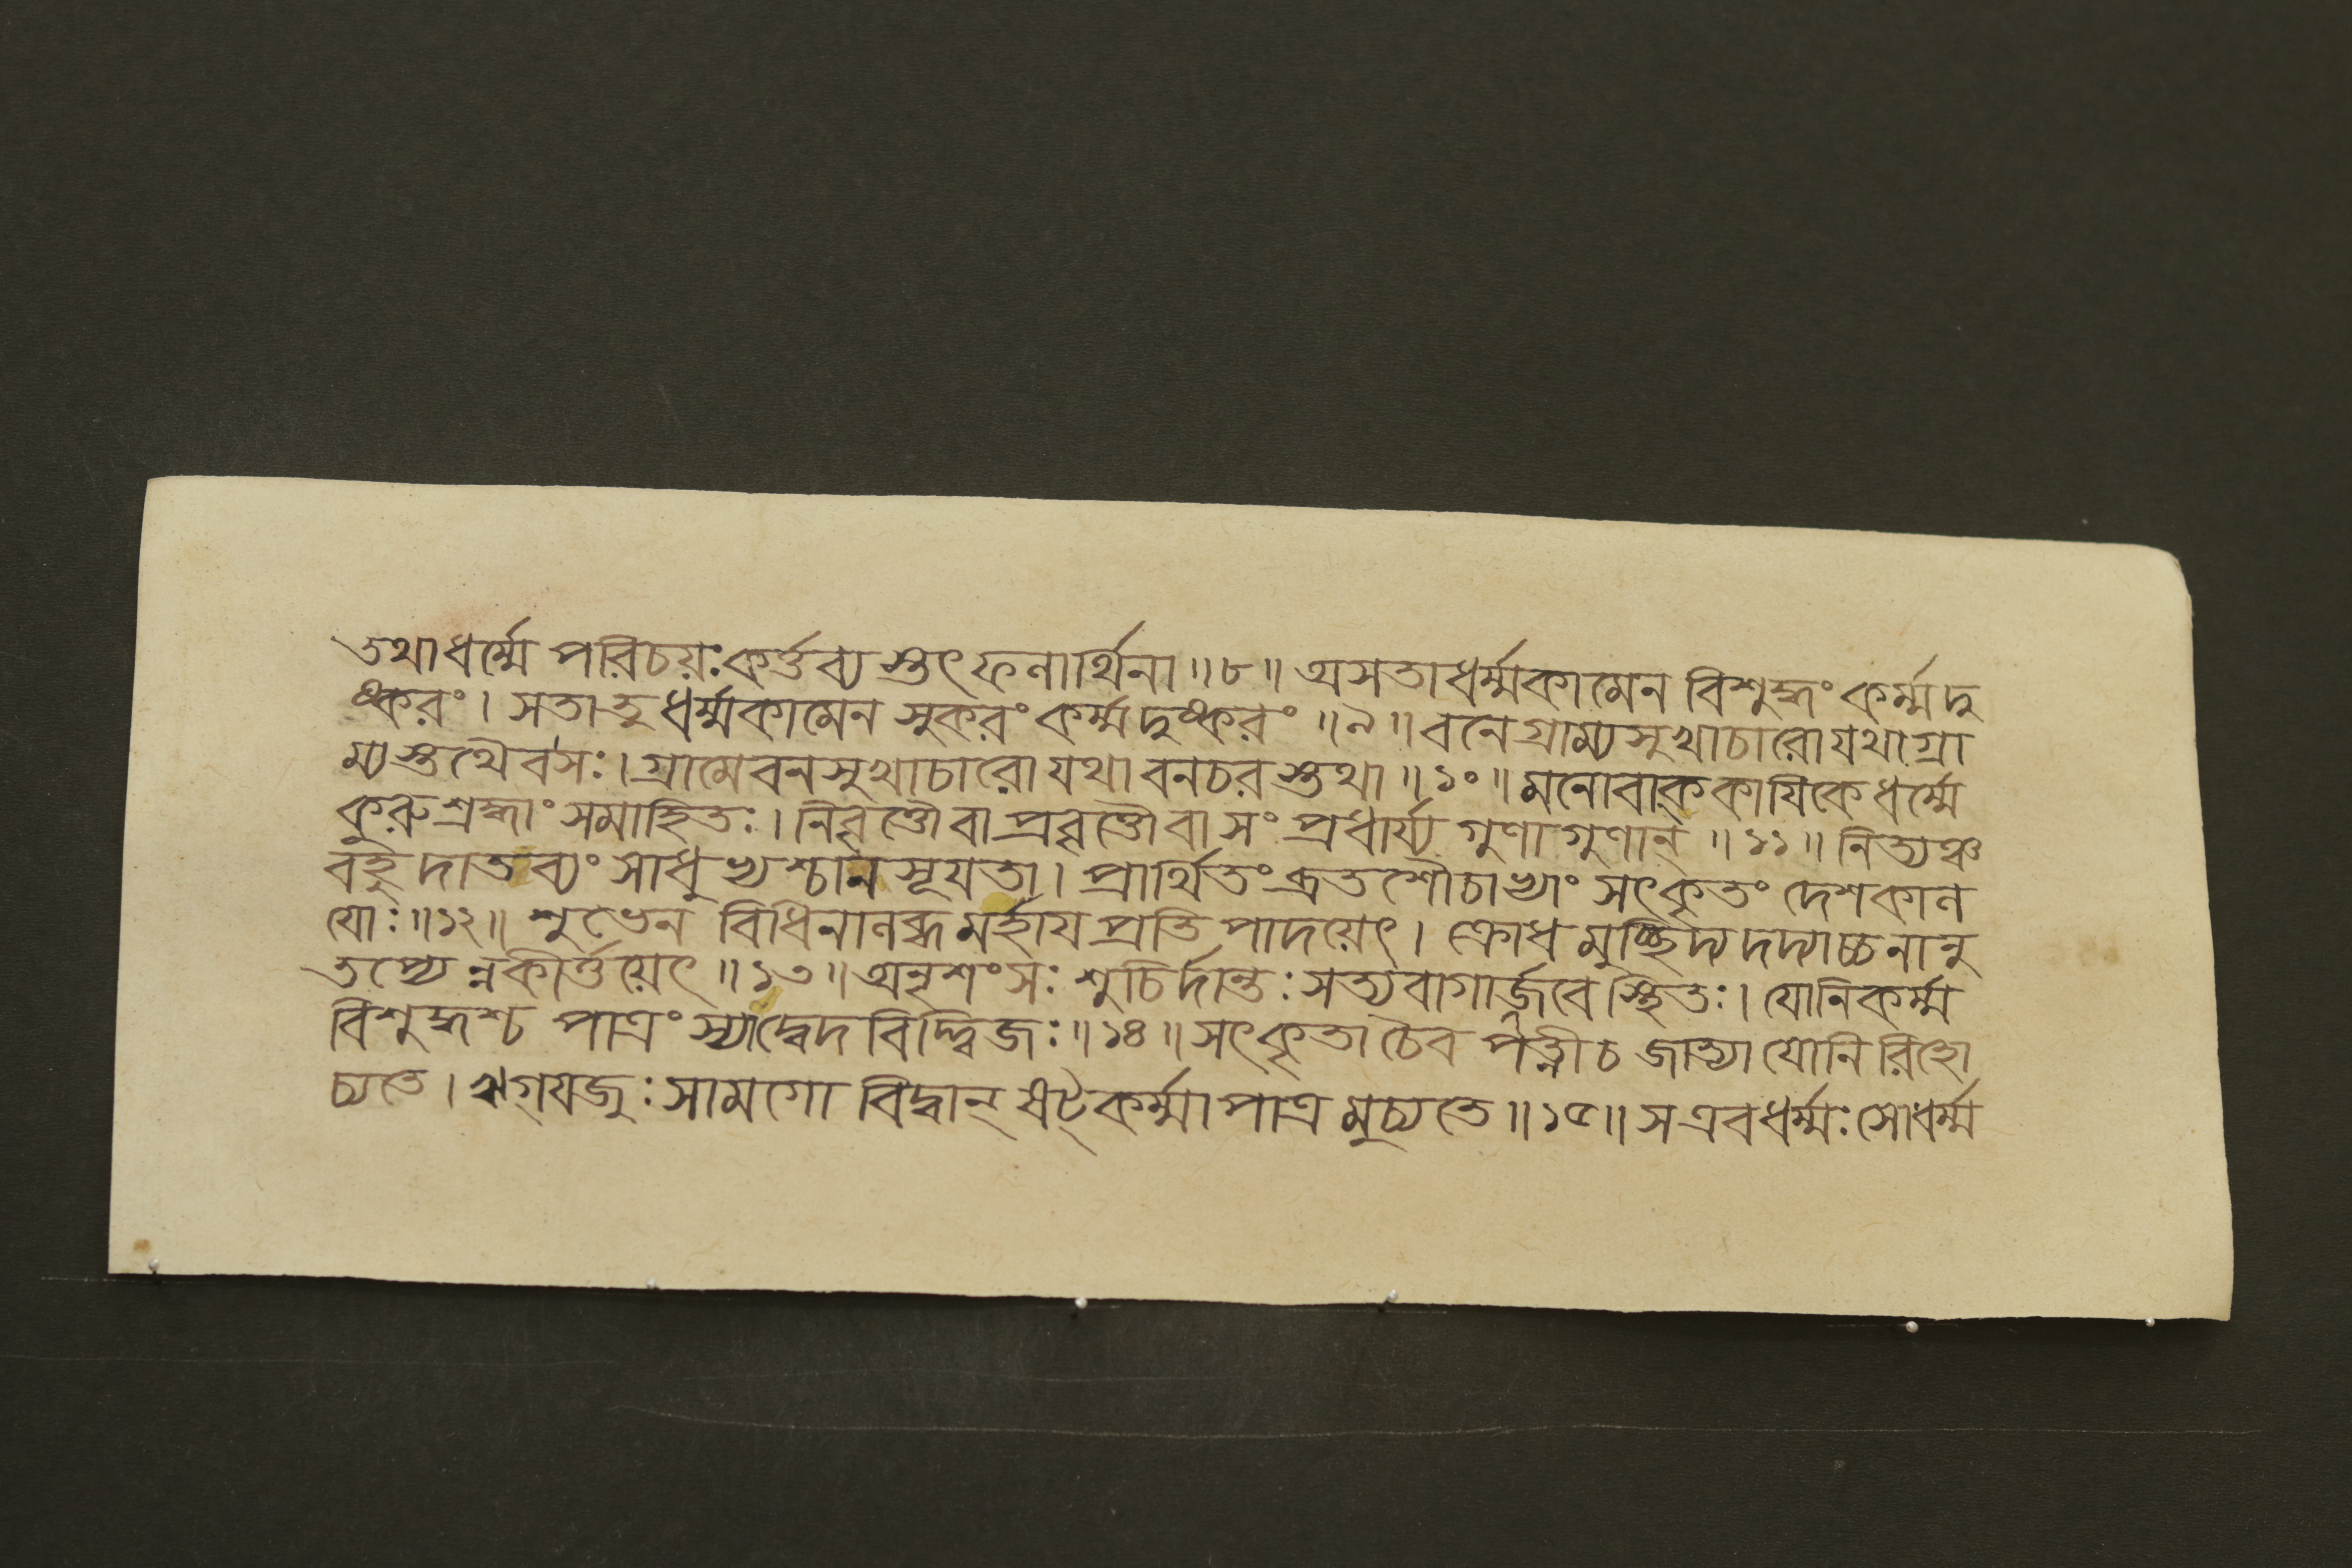 তথাধর্ম্মে পরিচয়ঃকর্ত্তব্য স্তৎ ফলার্থিনা॥৮॥ অসতাধর্ম্মকামেন বিশুদ্ধং কর্ম্মদু
ষ্করং। সতাতু ধর্ম্মকামেন সুকরং কর্ম্মদুষ্করং॥৯॥ বনেগ্রাম্যসুখাচারোযথাগ্রা
ম্যস্তথৈবসঃ। গ্রামেবনসুখাচারো যথাবনচর স্তথা॥১০॥ মনোবাক্কাযিকেধর্ম্মে
কুরুশ্রদ্ধাং সমাহিতঃ। নিবৃত্তৌবাপ্রবৃত্তৌবাসং প্রধার্য্য গুণাগুণান্॥১১॥ নিত্যঞ্চ
বহুদাতব্যং সাধুভ্যশ্চানসূযতা। প্রার্থিতংব্রতশৌচাভ্যাং সৎকৃতং দেশকাল
যোঃ॥১২॥ শুভেন বিধিনালব্ধমর্হায প্রতিপাদয়েৎ। ক্রোধমুচ্ছিদ্য দদ্যাচ্চনানু
তপ্যেন্নকীর্ত্তয়েৎ॥১৩॥ অনৃশংসঃ শুচির্দান্তঃ সত্যবাগার্জ্জবেস্থিতঃ। যোনিকর্ম্ম
বিশুদ্ধশ্চ পাত্রং স্যাদ্বেদবিদ্দ্বিজঃ॥১৪॥ সৎকৃতা চৈব পত্নীচ জাত্যা যোনিরিহো
চ্যতে। ঋগ্যজুঃসামগো বিদ্বান্ ষট্কর্ম্মাপাত্রমুচ্যতে॥১৫॥ সএবধর্ম্মঃসোধর্ম্ম